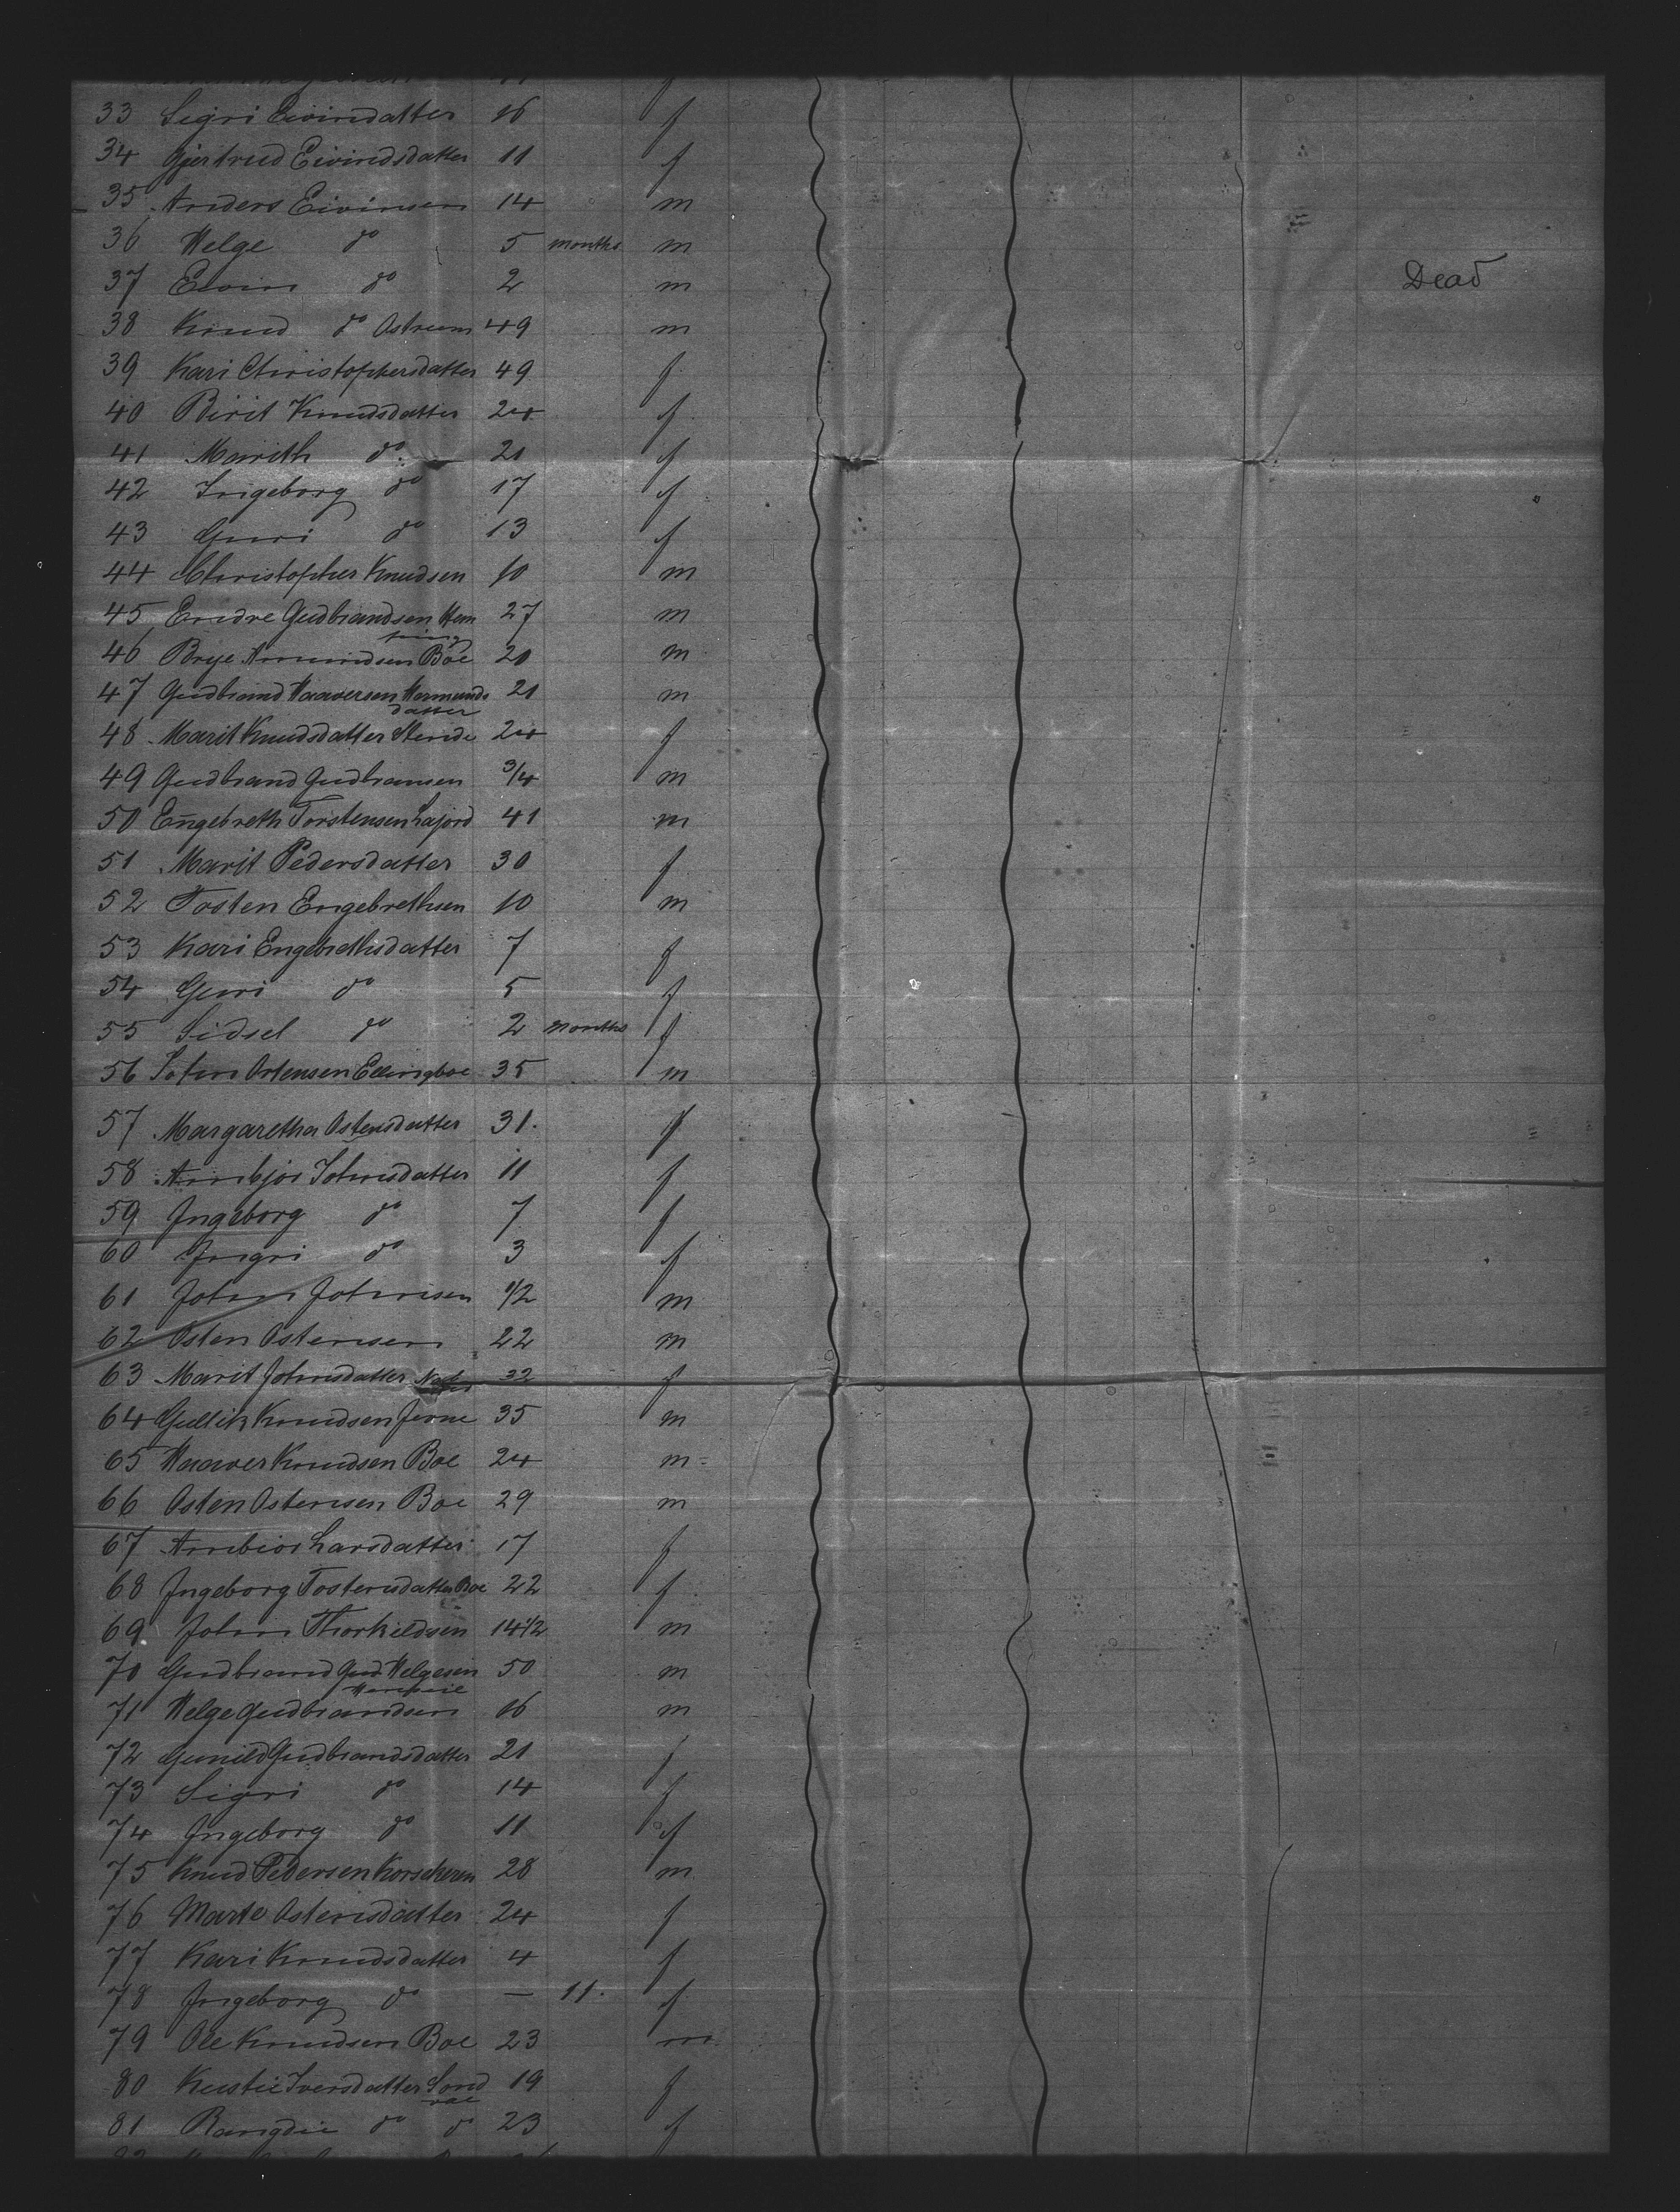 33 Sigri Eivindatter 16 f
34 Gjertrud Eivindsdatter 11 f
35 Anders Eivinsen 14 m
36 Helge do 5 months m
37 Eivin do 2 m Dead
38 Knud do Ostrum 49 m
39 Kari Christophersdatter 49 f
40 Birit Knudsdatter 24 f
41 Marith do 21 f
42 Ingeborg do 17 f
43 Guri do 13 f
44 Christopher Knudsen 10 m
45 Endre Gudbrandsen Hem 27 m
sing
46 Brye Amundsen Boe 20 m
47 Gudbrand Haaversen Hermunds 21 m
datter
48 Marit Knudsdatter 24 f
49 Gudbrand Gudbransen 3/4 m
50 Engebreth Torstensen Lajord 41 m
51 Marit Pedersdatter 30 f
52 Tosten Engebrethsen 10 m
53 Kari Engebrethsdatter 7 f
54 Guri do 5 f
55 Sidsel do 2 months f
56 John Ostensen Ellingboe 35 m
57 Margaretha Ostensdatter 31. f
58 Annbjor Johnsdatter 11 f
59 Ingeborg do 7 f
60 Ingri do 3 f
61 John Johnsen 1/2 m
62 Osten Ostensen 22 m
63 Marit Johnsdatter 32 f
64 Gullik Knudsen Jerne 35 m
65 Haaver Knudsen Boe 24 m
66 Osten Ostensen Boe 29 m
67 Annbior Larsdatter 17 f
68 Ingeborg Tostensdatter Boe 22 f
69 John Thorkildsen 14 1/2 m
70 Gudbrand Gud Helgesen 50 m
71 Helge Gudbrandsen 16 m
72 Gunild Gudbrandsdatter 21 f
73 Sigri do 14 f
74 Ingeborg do 11 f
75 Knud Pedersen Korsehern 28 m
76 Marte Ostensdatter 24 f
77 Kari Knudsdatter 4 f
78 Ingeborg do — 11. f
79 Ole Knudsen Boe 23 m
80 Kustie Iversdatter Sond 19 f
rae
81 Rangdie do do 23 f